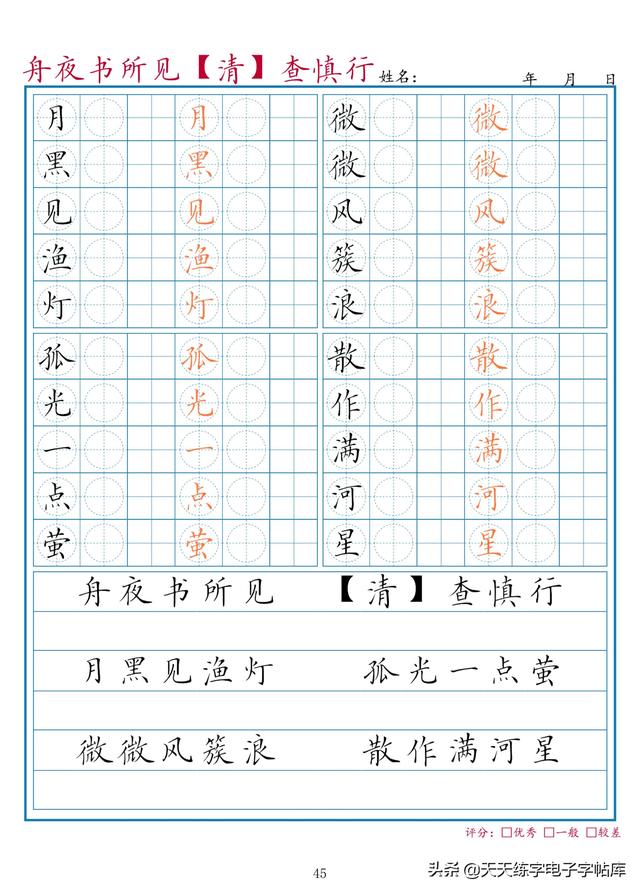 舟夜书所见【清】查慎行 姓名： 年 月 日
月 月 微 微
黑 黑 微 微
见 见 风 风
渔 渔 簇 簇
灯 灯 浪 浪
孤 孤 散 散
光 光 作 作
一 一 满 满
点 点 河 河
萤 萤 星 星
舟夜书所见 【清】查慎行
月黑见渔灯 孤光一点萤
微微风簇浪 散作满河星
评分：□优秀 □一般 □较差
45
头条 @天天练字电子字帖库